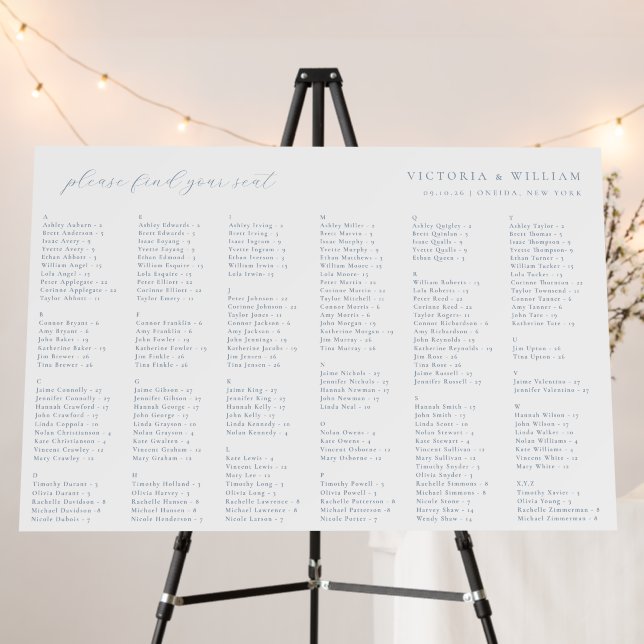 please find your seat
VICTORIA & WILLIAM
09.10.26 | ONEIDA, NEW YORK
A
Ashley Auburn - 2
Brett Anderson - 5
Isaac Avery - 9
Yvette Avery - 9
Ethan Abbott - 3
William Angel - 15
Lola Angel - 15
Peter Applegate - 2
Corinne Applegate - 2
Taylor Abbott - 11
B
Connor Bryant - 6
Amy Bryant - 6
John Baker - 19
Katherine Baker - 19
Jim Brewer - 26
Tina Brewer - 26
C
Jaime Connolly - 27
Jennifer Connolly - 27
Hannah Crawford - 17
John Crawford - 17
Linda Coppola - 10
Nolan Christianson - 4
Kate Christianson - 4
Vincent Crawley - 12
Mary Crawley - 12
D
Timothy Durant - 3
Olivia Durant - 3
Rachelle Davidson - 8
Michael Davidson - 8
Nicole Dubois - 7
E
Ashley Edwards - 2
Brett Edwards - 5
Isaac Eoyang - 9
Yvette Eoyang - 9
Ethan Edmond - 3
William Esquire - 15
Lola Esquire - 15
Peter Elliott - 2
Corinne Elliott - 2
Taylor Emery - 11
F
Connor Franklin - 6
Amy Franklin - 6
John Fowler - 19
Katherine Fowler - 19
Jim Finkle - 26
Tina Finkle - 26
G
Jaime Gibson - 27
Jennifer Gibson - 27
Hannah George - 17
John George - 17
Linda Grayson - 10
Nolan Grayson - 4
Kate Gwaiten - 4
Vincent Graham - 12
Mary Graham - 12
H
Timothy Holland - 3
Olivia Harvey - 3
Rachelle Hansen - 8
Michael Hansen - 8
Nicole Henderson - 7
I
Ashley Irving - 2
Brett Irving - 5
Isaac Ingram - 9
Yvette Ingram - 9
Ethan Iverson - 3
William Irwin - 15
Lola Irwin - 15
J
Peter Johnson - 2
Corinne Johnson - 2
Taylor Jones - 11
Connor Jackson - 6
Amy Jackson - 6
John Jennings - 19
Katherine Jacobs - 19
Jim Jensen - 26
Tina Jensen - 26
K
Jaime King - 27
Jennifer King - 27
Hannah Kelly - 17
John Kelly - 17
Linda Kennedy - 10
Nolan Kennedy - 4
L
Kate Lewis - 4
Vincent Lewis - 12
Mary Lee - 12
Timothy Long - 3
Olivia Long - 3
Rachelle Lawrence - 8
Michael Lawrence - 8
Nicole Larson - 7
M
Ashley Miller - 2
Brett Marvin - 5
Isaac Murphy - 9
Yvette Murphy - 9
Ethan Matthews - 3
William Moore - 15
Lola Moore- 15
Peter Martin - 2
Corinne Martin - 2
Taylor Mitchell - 11
Connor Morris - 6
Amy Morris - 6
John Morgan - 19
Katherine Morgan - 19
Jim Murray - 26
Tina Murray - 26
N
Jaime Nichols - 27
Jennifer Nichols - 27
Hannah Newman - 17
John Newman - 17
Linda Neal - 10
O
Nolan Owens - 4
Kate Owens - 4
Vincent Osborne - 12
Mary Osborne - 12
P
Timothy Powell - 3
Olivia Powell - 3
Rachelle Patterson - 8
Michael Patterson - 8
Nicole Porter - 7
Q
Ashley Quigley - 2
Brett Quinlan - 5
Isaac Qualls - 9
Yvette Qualls - 9
Ethan Queen - 3
R
William Roberts - 15
Lola Roberts - 15
Peter Reed - 2
Corinne Reed - 2
Taylor Rogers - 11
Connor Richardson - 6
Amy Richardson - 6
John Reynolds - 19
Katherine Reynolds - 19
Jim Rose - 26
Tina Rose - 26
Jaime Russell - 27
Jennifer Russell - 27
S
Hannah Smith - 17
John Smith - 17
Linda Scott - 10
Nolan Stewart - 4
Kate Stewart - 4
Vincent Sullivan - 12
Mary Sullivan - 12
Timothy Snyder - 3
Olivia Snyder - 3
Rachelle Simmons - 8
Michael Simmons - 8
Nicole Stone - 7
Harvey Shaw - 14
Wendy Shaw - 14
T
Ashley Taylor - 2
Brett Thomas - 5
Isaac Thompson - 9
Yvette Thompson - 9
Ethan Turner - 3
William Tucker - 15
Lola Tucker - 15
Corinne Thornton - 2
Taylor Townsend - 11
Connor Tanner - 6
Amy Tanner - 6
John Tate - 19
Katherine Tate - 19
U
Jim Upton - 26
Tina Upton - 26
V
Jaime Valentino - 27
Jennifer Valentino - 27
W
Hannah Wilson - 17
John Wilson - 17
Linda Walker - 10
Nolan Williams - 4
Kate Williams - 4
Vincent White - 12
Mary White - 12
X,Y,Z
Timothy Xavier - 3
Olivia Young - 3
Rachelle Zimmerman - 8
Michael Zimmerman - 8